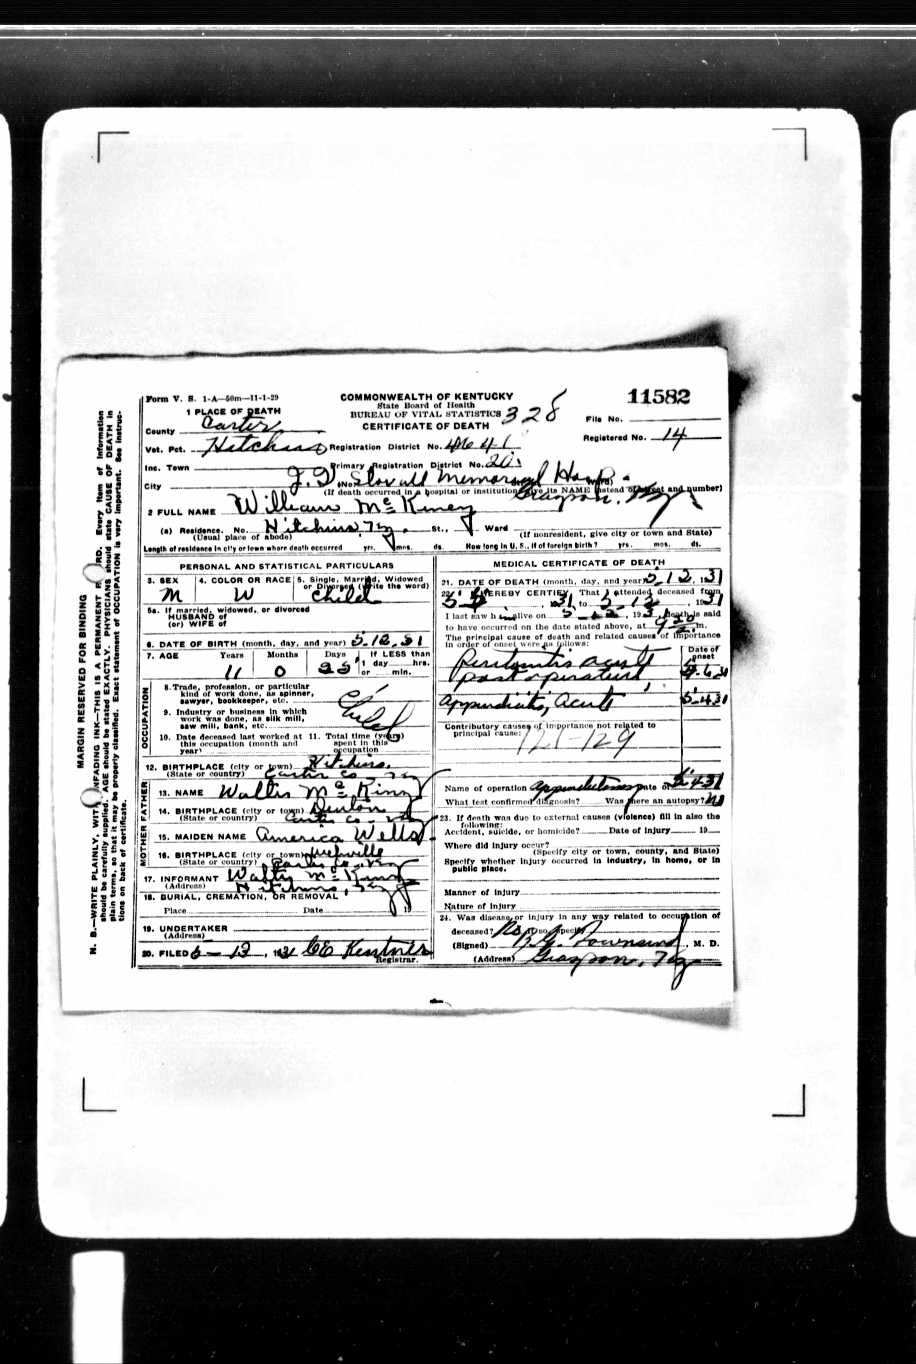 Form V. S. 1-A—50m—11-1-29
COMMONWEALTH OF KENTUCKY
State Board of Health
BUREAU OF VITAL STATISTICS 328
CERTIFICATE OF DEATH
11582
File No.
Registered No. 14
1 PLACE OF DEATH
County Carter
Vot. Pct. Hitchins Registration District No. 4641
Inc. Town Primary Registration District No. 20
City (No. J. Q. Stovall Memorial Hosp. Ward)
(If death occurred in a hospital or institution, give its NAME instead of street and number)
Grayson, Ky
2 FULL NAME William McKiney
(a) Residence. No. Hitchins, Ky. St., Ward
(Usual place of abode) (If nonresident, give city or town and State)
Length of residence in city or town where death occurred yrs. mos. ds. How long in U. S., if of foreign birth? yrs. mos. ds.
PERSONAL AND STATISTICAL PARTICULARS
3. SEX M
4. COLOR OR RACE W
5. Single, Married, Widowed or Divorced (Write the word) Child
5a. If married, widowed, or divorced
HUSBAND of
(or) WIFE of
6. DATE OF BIRTH (month, day, and year) 5.12.31
7. AGE Years Months Days If LESS than
11 0 1 day hrs.
or min.
OCCUPATION
8. Trade, profession, or particular
kind of work done, as spinner,
sawyer, bookkeeper, etc.
9. Industry or business in which
work was done, as silk mill,
saw mill, bank, etc. Child
10. Date deceased last worked at this occupation (month and year)
11. Total time (years) spent in this occupation
12. BIRTHPLACE (city or town) Hitchins,
(State or country) Carter Co, Ky
MOTHER FATHER
13. NAME Walter McKiney
14. BIRTHPLACE (city or town) Denton
(State or country) Carter Co - Ky
15. MAIDEN NAME America Wells
16. BIRTHPLACE (city or town)
(State or country)
17. INFORMANT Walter McKiney
(Address) Hitchins, Ky
18. BURIAL, CREMATION, OR REMOVAL
Place Date 19
19. UNDERTAKER
(Address)
20. FILED 5-13, 1931 CE Kestner
Registrar.
MEDICAL CERTIFICATE OF DEATH
21. DATE OF DEATH (month, day, and year) 5.12.31
22. I HEREBY CERTIFY, That I attended deceased from
, 1931 to 5-12, 1931
I last saw h alive on 5-12, 1931 death is said
to have occurred on the date stated above, at 920 m.
The principal cause of death and related causes of importance
in order of onset were as follows:
Date of onset
Peritonitis acute
post operative
Appendicitis, Acute 5-4-31
Contributory causes of importance not related to
principal cause:
121-129
Name of operation Appendectomy Date of 5-4-31
What test confirmed diagnosis? Was there an autopsy? No
23. If death was due to external causes (violence) fill in also the
following:
Accident, suicide, or homicide? Date of injury 19
Where did injury occur?
(Specify city or town, county, and State)
Specify whether injury occurred in industry, in home, or in
public place.
Manner of injury
Nature of injury
24. Was disease or injury in any way related to occupation of
deceased? No If so, specify
(Signed) Townsend, M. D.
(Address) Grayson, Ky
MARGIN RESERVED FOR BINDING
N. B.—WRITE PLAINLY, WITH UNFADING INK—THIS IS A PERMANENT RECORD. Every item of information
should be carefully supplied. AGE should be stated EXACTLY. PHYSICIANS should state CAUSE OF DEATH in
plain terms, so that it may be properly classified. Exact statement of OCCUPATION is very important. See instruc-
tions on back of certificate.